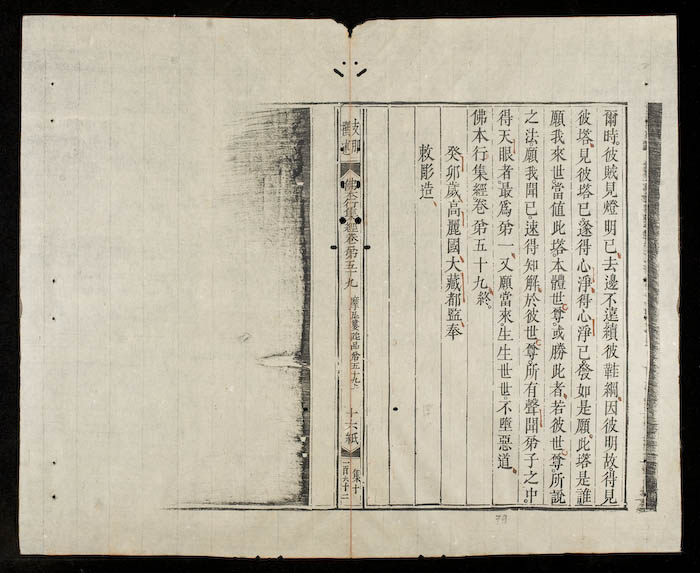 爾時。彼賊見燈明已。去邊不遠續彼鞋綱。因彼明故得見
彼塔。見彼塔已。遂得心淨。得心淨已。發如是願。此塔是誰
願我來世。當值此塔。本體世尊。或勝此者。若彼世尊。所說
之法。願我聞已。速得知解。於彼世尊。所有聲聞弟子之中。
得天眼者。最為第一。又願當來。生生世世。不墮惡道。
佛本行集經卷第五十九終
癸卯歲高麗國大藏都監奉
敕彫造
佛本行集經卷第五十九
摩尼婁陀品第五十九之
十六紙
集十
一百六十二
79